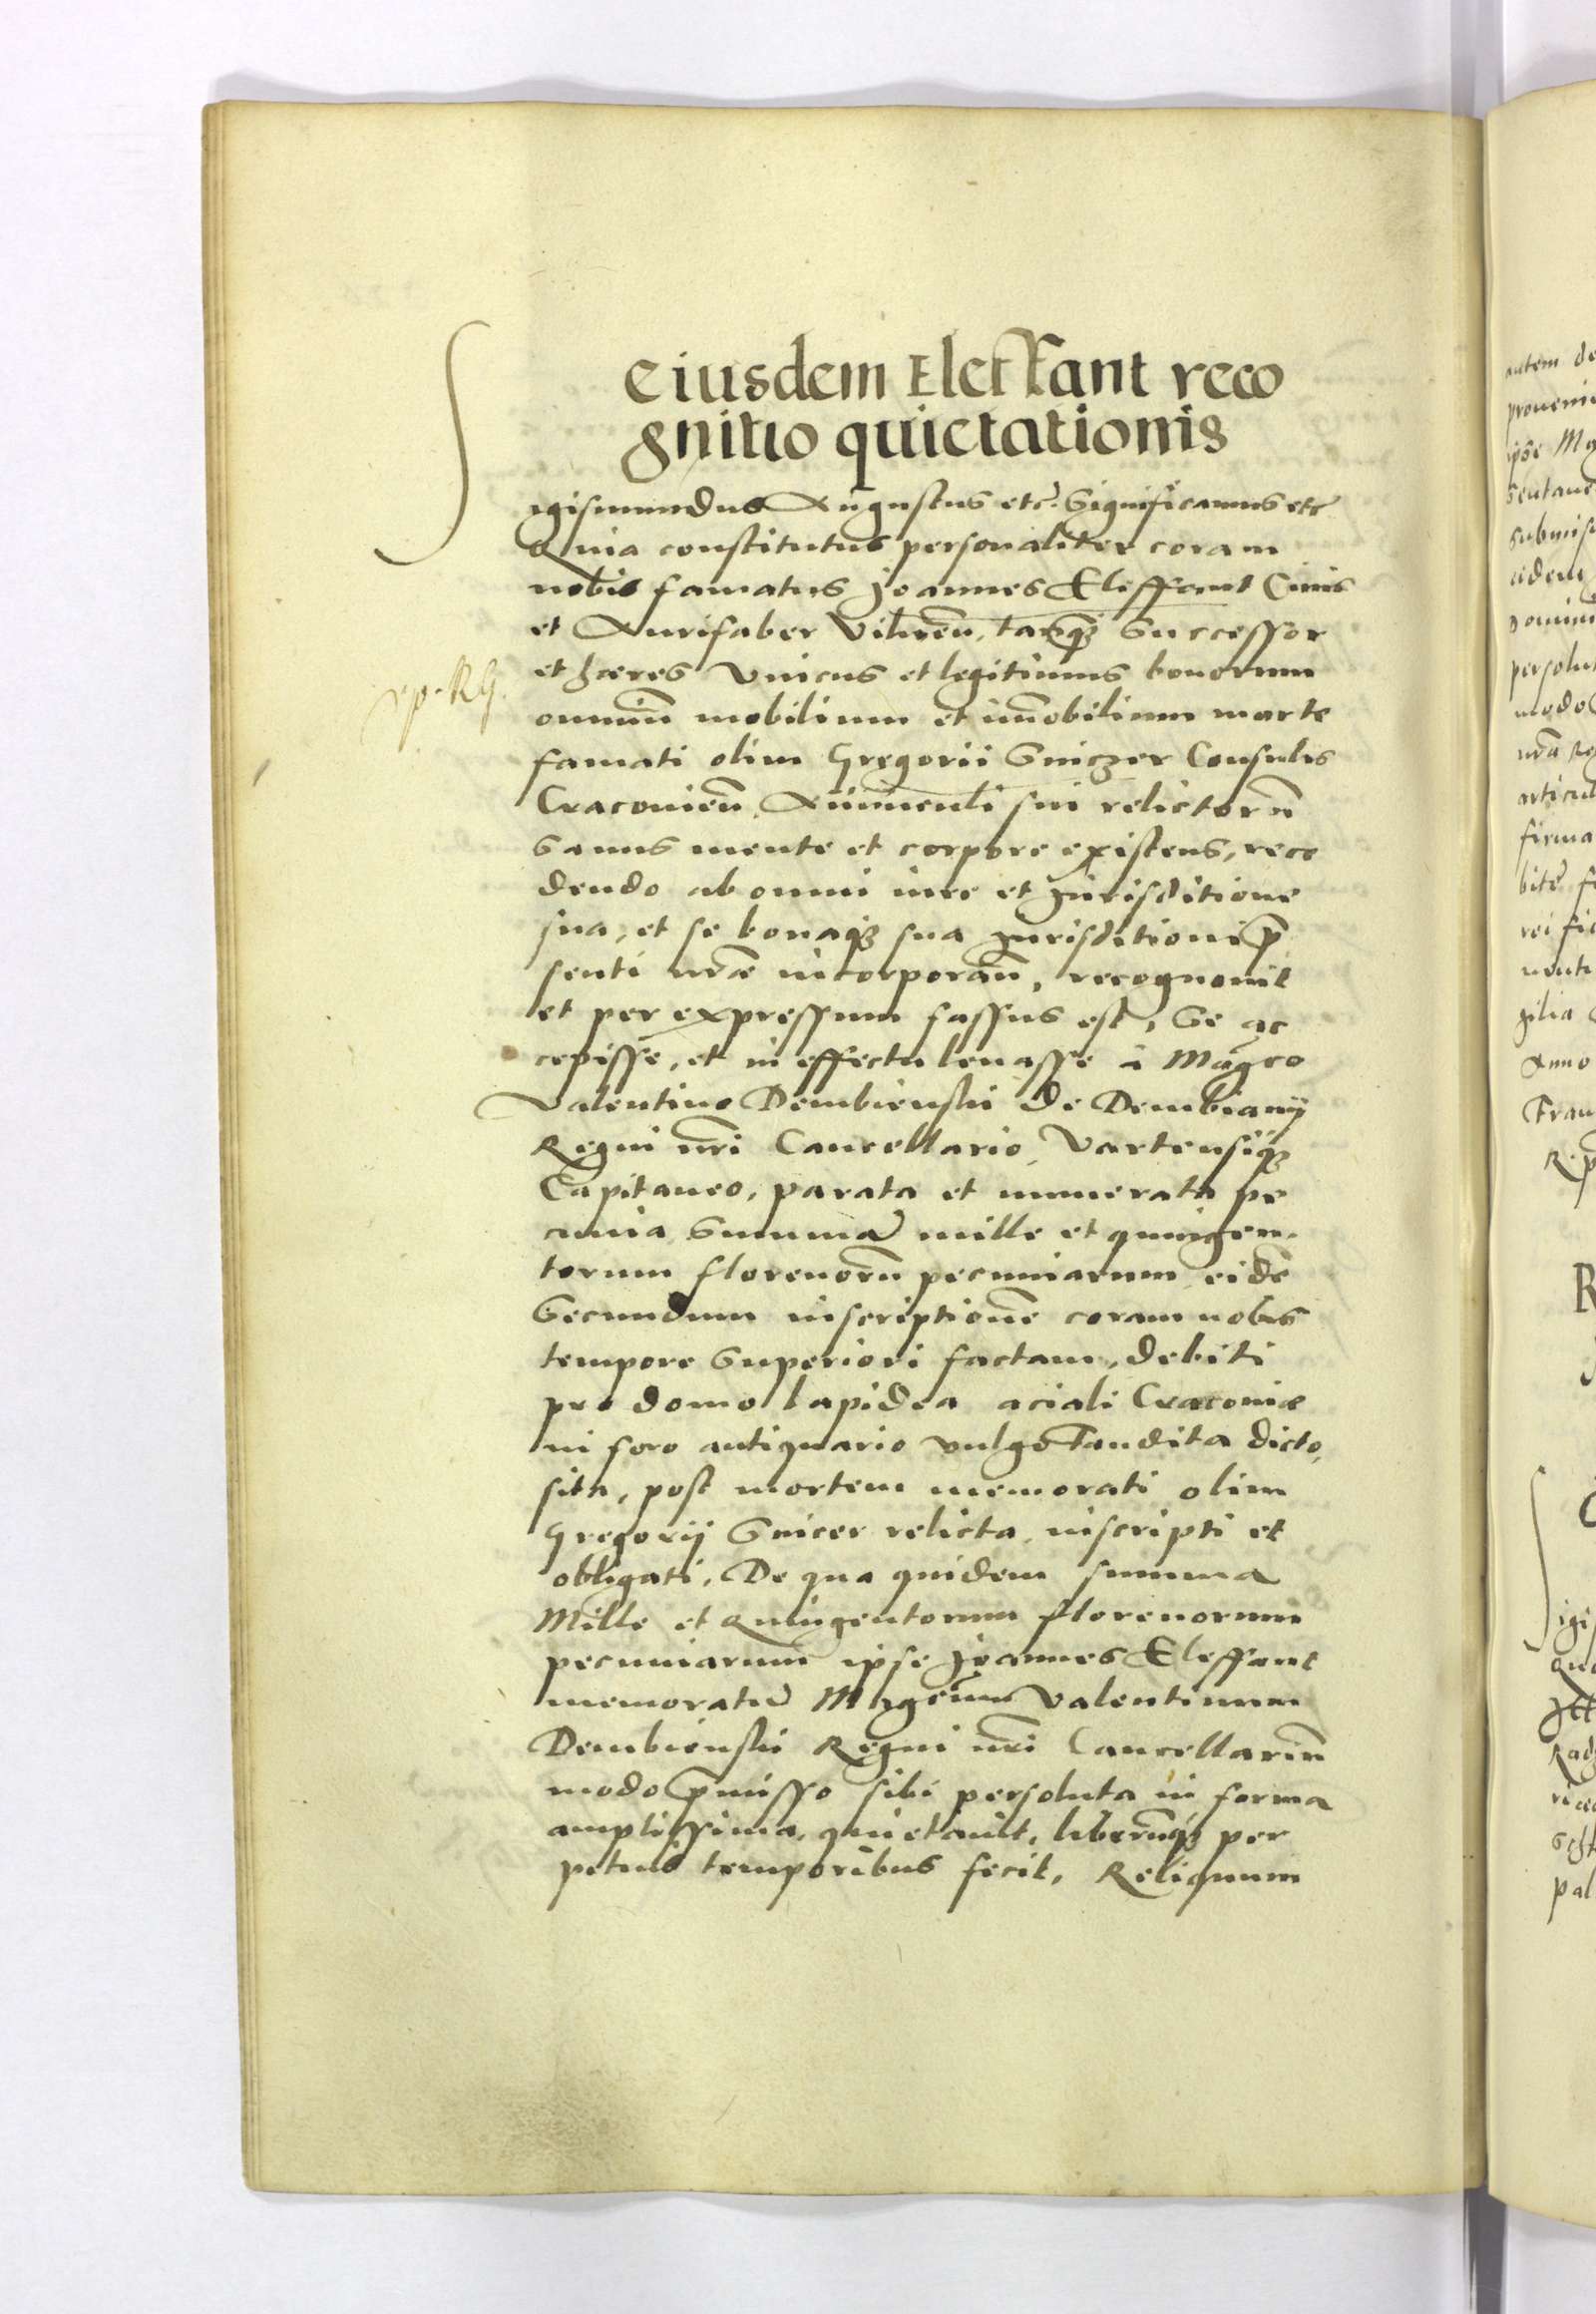 Eiusdem Eleffant reco
gnitio quietationis
Sigismundus Augustus etc̃. Significamus etc̃
Quia constitutus personaliter coram
nobis famatus Joannes Eleffant Ciuis
et Aurifaber Vilneñ, tanq̃ Successor
et hæres vnicus et legitimus bonorum
omniũ mobilium et im̃obilium morte
famati olim Gregorii Gniczer Consulis
Cracovieñ, Auunculi sui relictorũ
sanus mente et corpore existens, rece
dendo ab omni iure et Jurisditione
sua, et se bonaq3 sua Jurisditioni p̃
senti nr̃æ incorporañ, recognouit
et per expressum fassus est, se ac
cepisse, et in effectu leuasse à Mag̃co
Valentino Dembienski de Dembiany
Regni nr̃i Cancellario, Vartensiq3
Capitaneo, parata et numerata pe
cunia summã mille et quingen-
torum florenorũ pecuniarum eidẽ
secundum inscriptionẽ coram nobis
tempore superiori factam, debiti
pro domo lapidea aciali Cracoviæ
in foro antiquario vulgo Tandita dicto,
sita, post mortem memorati olim
Gregorij Gnicer relicta, inscripti et
obligati. De qua quidem summa
Mille et Quingentorum florenorum
pecuniarum ipse Joannes Eleffant
memoratũ Mag̃cum Valentinum
Dembienski Regni nr̃i Cancellariũ
modo p̃misso sibi persoluta in forma
amplissima, quietauit, liberũq3 per
petuis temporibus fecit. Reliquum
autem de
ipse Mg
persolu
modo
articul
firma
rei fi
gilia
Anno
Fran